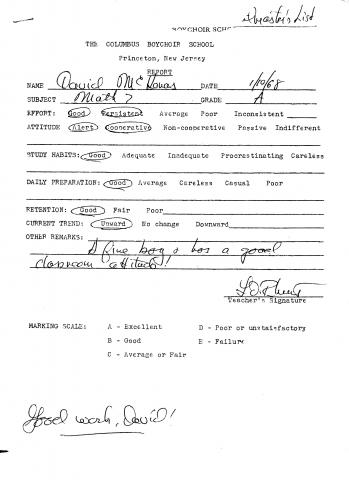 Director's List
BOYCHOIR SCHO
THE COLUMBUS BOYCHOIR SCHOOL
Princeton, New Jersey
REPORT
NAME David DATE 1/10/68
SUBJECT Math 7 GRADE A
EFFORT: Good Persistent Average Poor Inconsistent
ATTITUDE Alert Cooperative Non-cooperative Passive Indifferent
STUDY HABITS: Good Adequate Inadequate Procrastinating Careless
DAILY PREPARATION: Good Average Careless Casual Poor
RETENTION: Good Fair Poor
CURRENT TREND: Upward No change Downward
OTHER REMARKS:
A fine boy & has a good
classroom attitude!
Teacher's Signature
MARKING SCALE: A - Excellent D - Poor or unstaisfactory
B - Good E - Failure
C - Average or Fair
Good work, David!